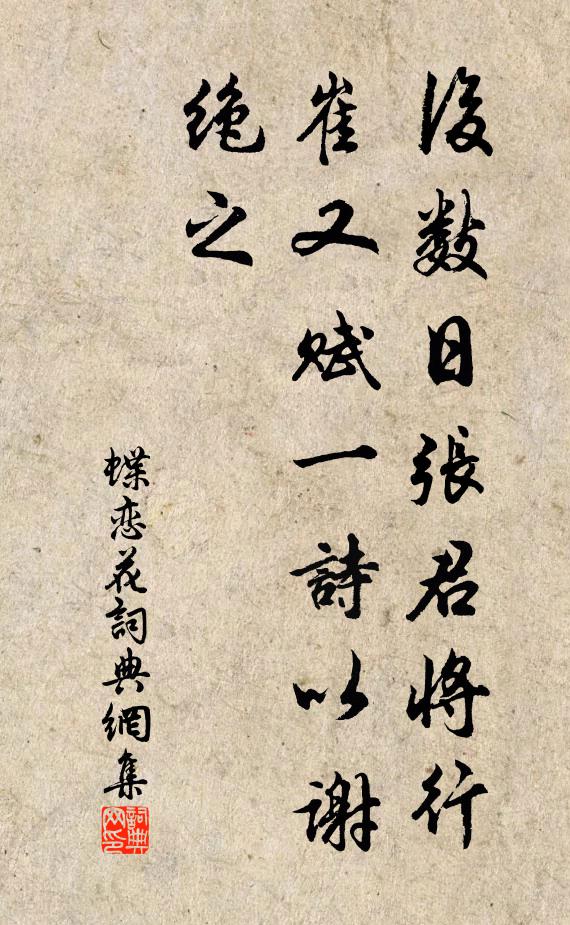 後数日張君將行
崔又賦一詩以謝
絶之
蝶恋花詞典網集
詞典
网印